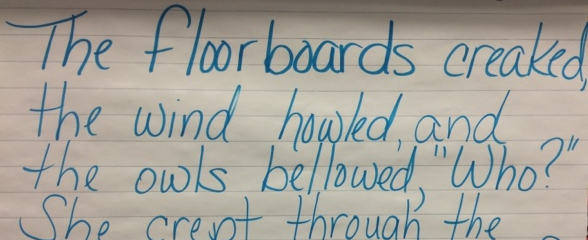 The floorboards creaked,
the wind howled, and
the owls bellowed, "Who?"
She crept through the